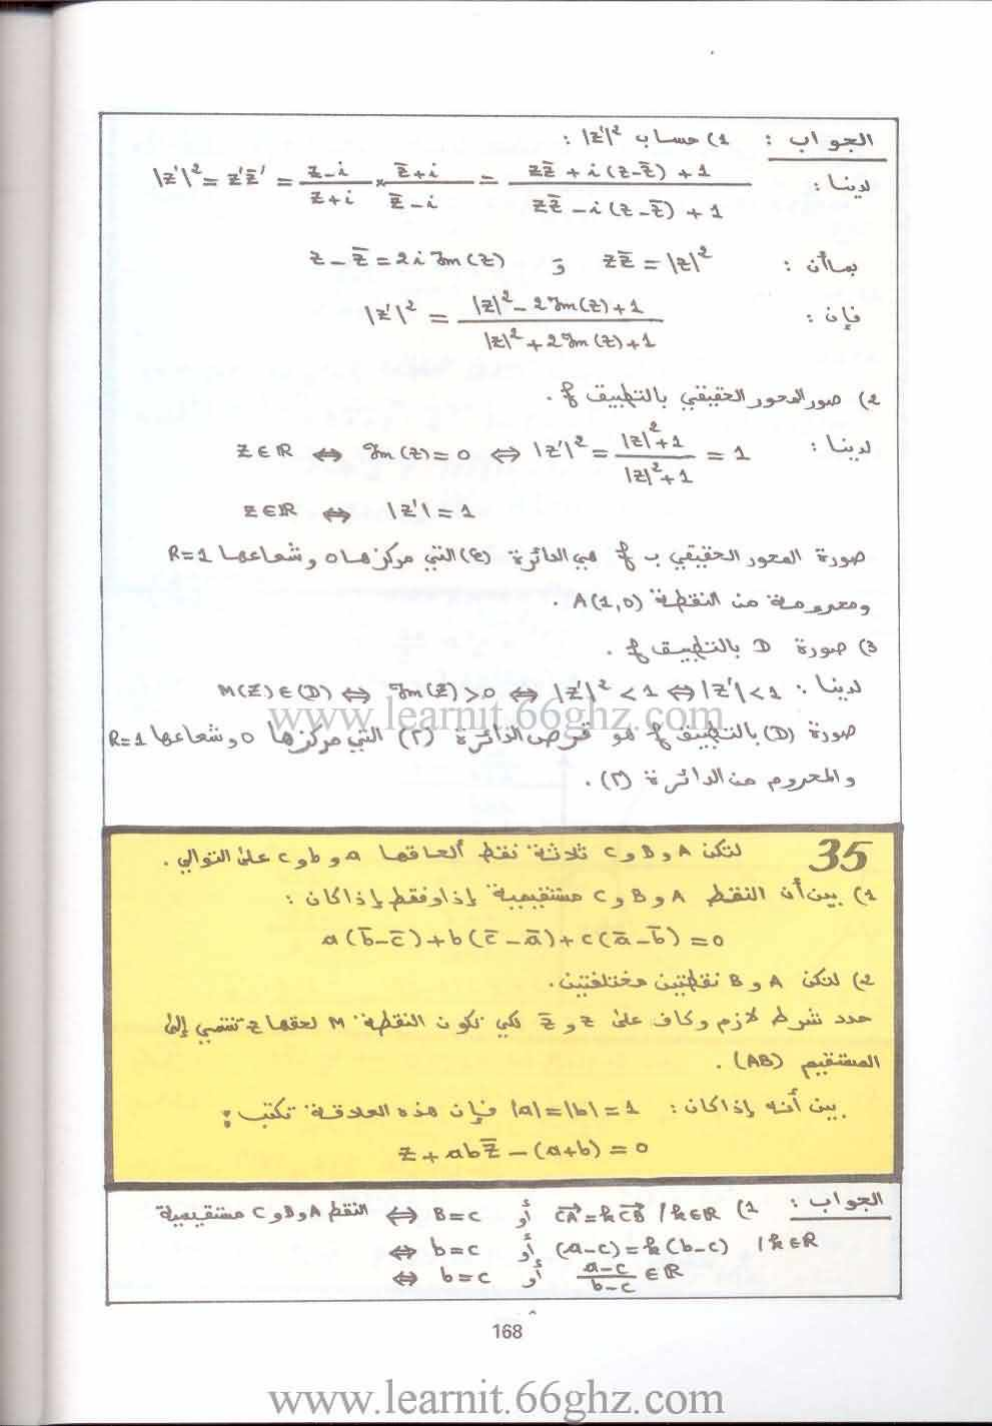 الجواب : 1) حساب |z'|² :
لدينا : |z'|² = z'z̄' = (z-i)/(z+i) × (z̄+i)/(z̄-i) = (zz̄ + i(z-z̄) + 1)/(zz̄ - i(z-z̄) + 1)
بما أن : zz̄ = |z|² و z - z̄ = 2i Im(z)
فإن : |z'|² = (|z|² - 2Im(z) + 1)/(|z|² + 2Im(z) + 1)
2) صور المحور الحقيقي بالتطبيق f .
لدينا : z∈ℝ ⇔ Im(z) = 0 ⇔ |z'|² = (|z|²+1)/(|z|²+1) = 1
z∈ℝ ⇔ |z'| = 1
صورة المحور الحقيقي ب f هي الدائرة (φ) التي مركزها o وشعاعها R=1
ومحرومة من النقطة A(1,0) .
3) صورة D بالتطبيق f .
لدينا : M(z)∈(D) ⇔ Im(z)>0 ⇔ |z'|² <1 ⇔ |z'|<1
صورة (D) بالتطبيق f هو قرص الدائرة (Γ) التي مركزها o وشعاعها R=1
والمحروم من الدائرة (Γ) .
35 لتكن A و B و C ثلاثة نقط ألحاقها a و b و c على التوالي .
1) بين أن النقط A و B و C مستقيمية إذا وفقط إذا كان :
a(b̄-c̄)+b(c̄-ā)+c(ā-b̄) = 0
2) لتكن A و B نقطتين مختلفتين.
حدد شرط لازم وكاف على z و z̄ لكي تكون النقطة M لحقها z تنتمي إلى
المستقيم (AB) .
بين أنه إذا كان : |a|=|b|=1 فإن هذه العلاقة تكتب :
z + abz̄ - (a+b) = 0
الجواب : 1) النقط A و B و C مستقيمية ⇔ B=C أو CA⃗ = k CB⃗ / k∈ℝ
⇔ b=c أو (a-c)=k(b-c) / k∈ℝ
⇔ b=c أو (a-c)/(b-c) ∈ ℝ
168
www.learnit.66ghz.com
www.learnit.66ghz.com